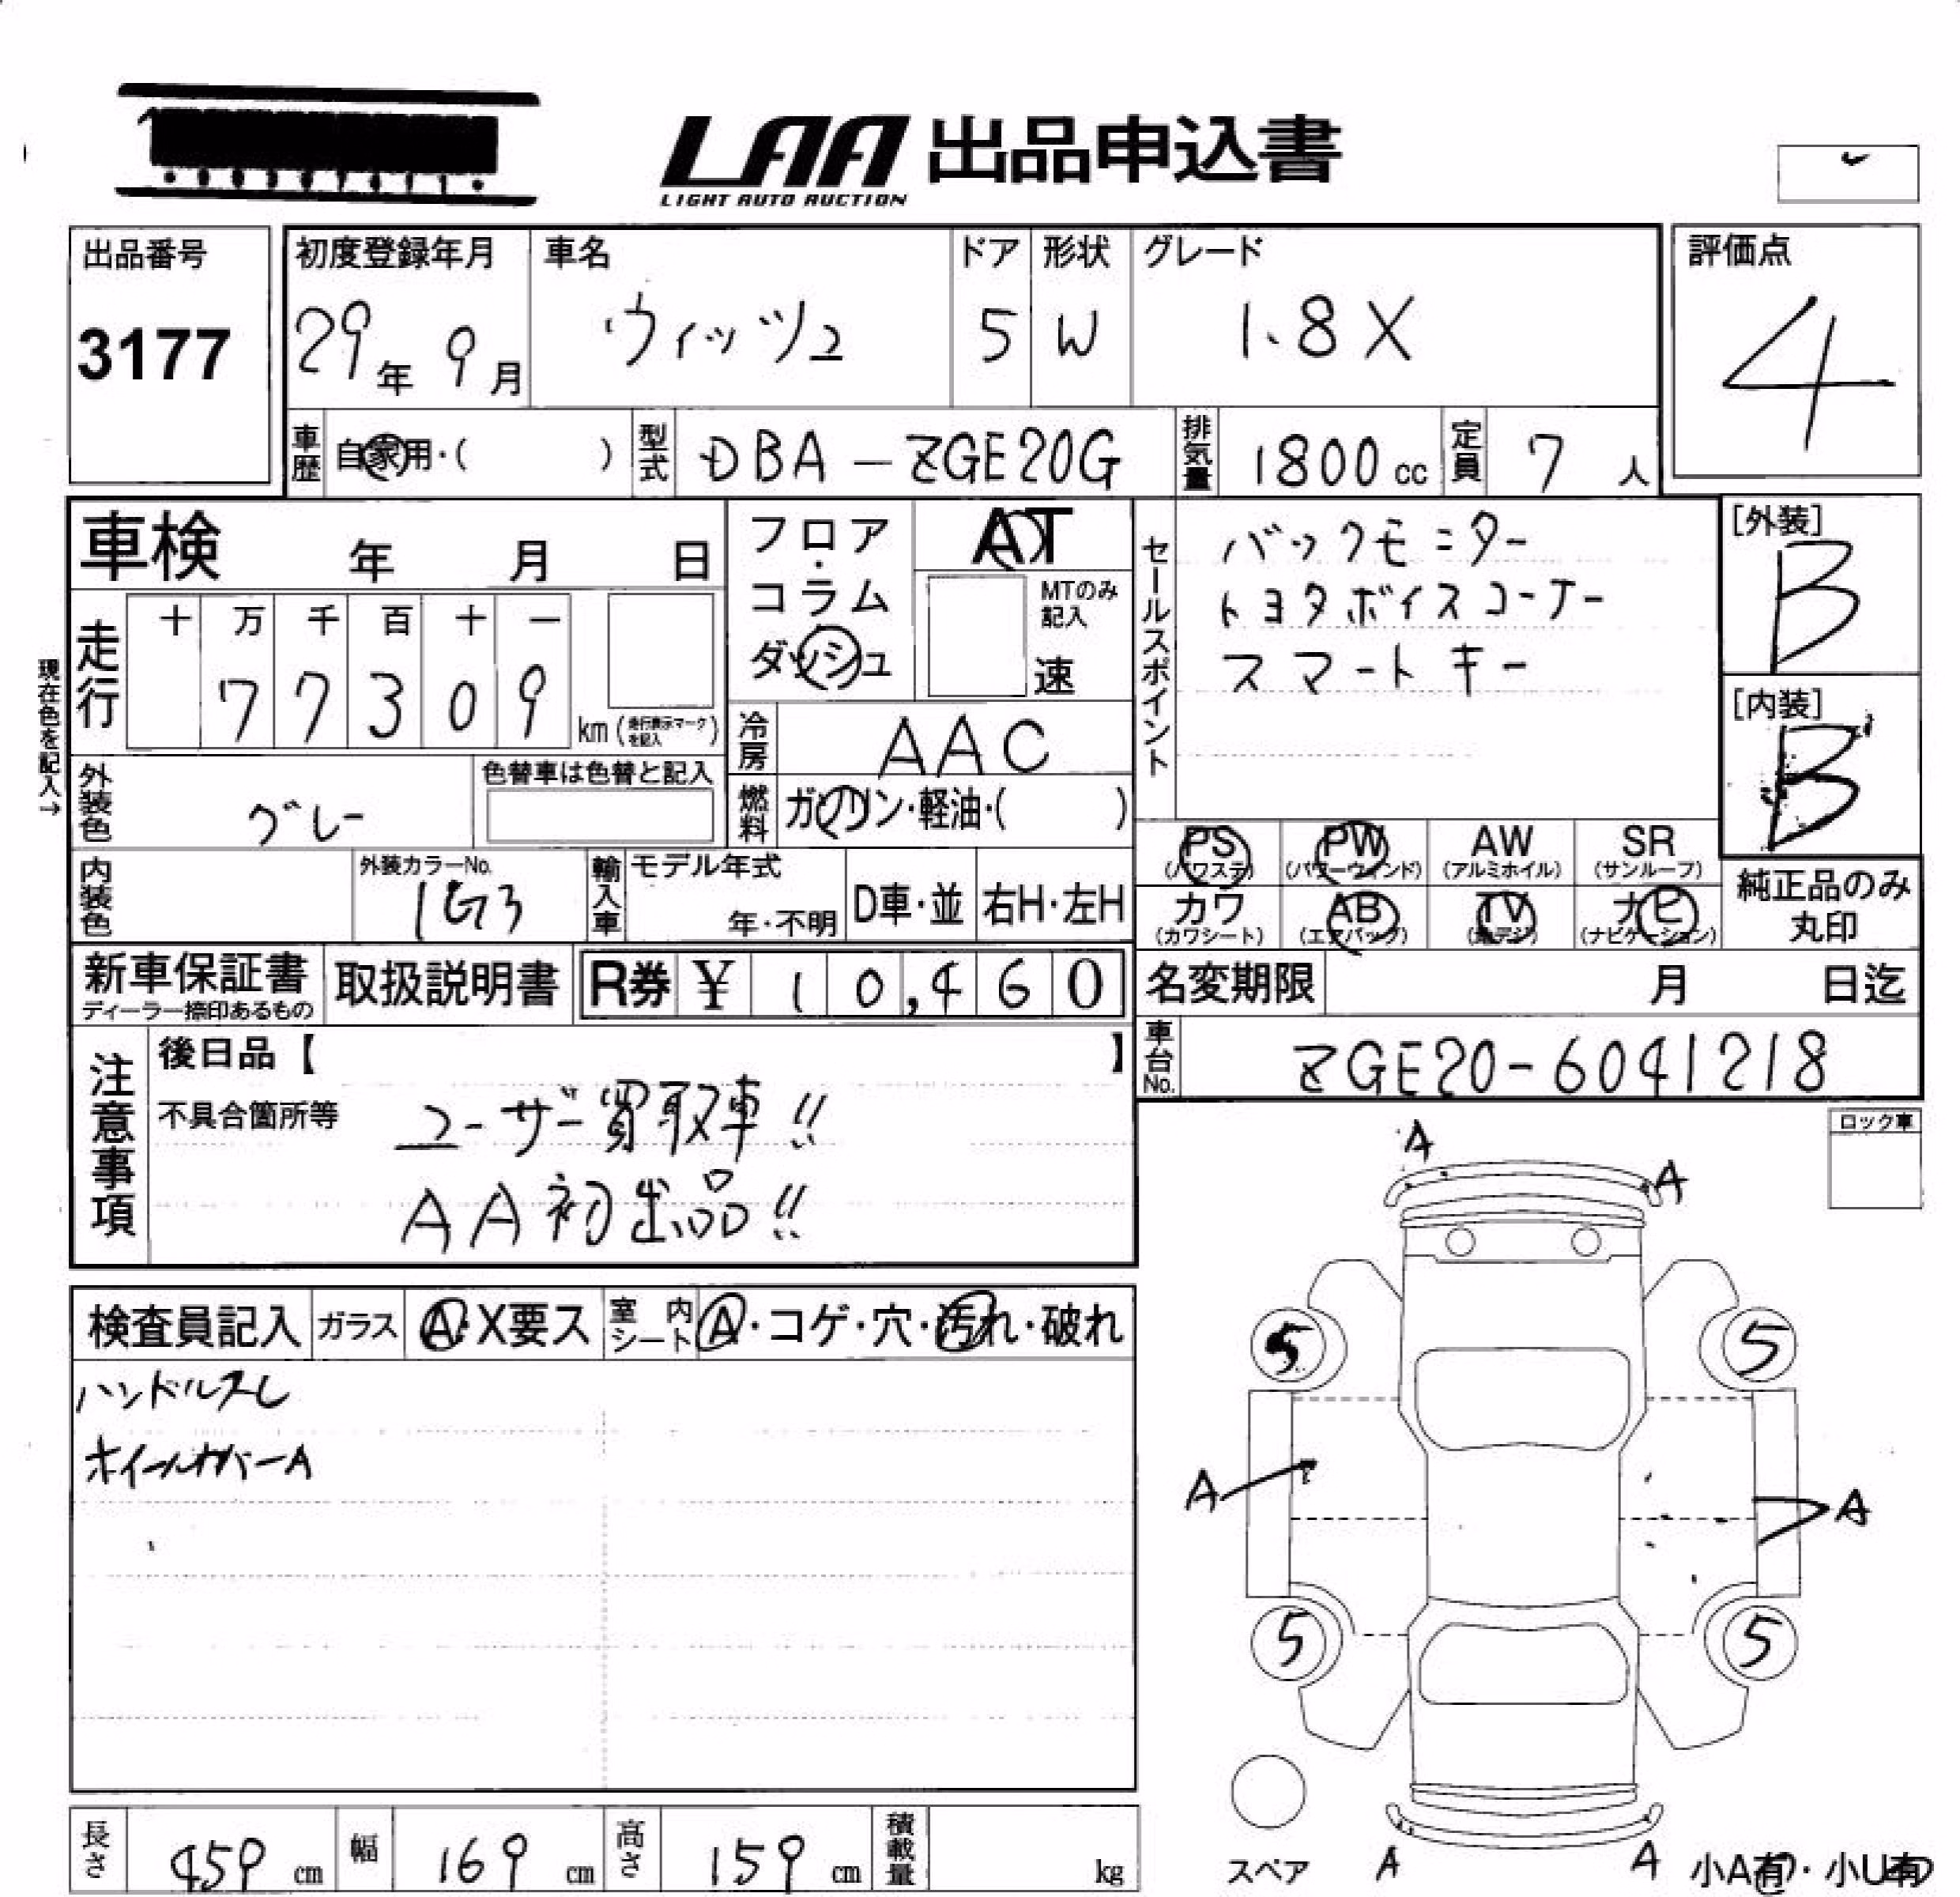 LAA 出品申込書
LIGHT AUTO AUCTION
出品番号
3177
初度登録年月
29年 9月
車名
ウィッツュ
ドア
5
形状
W
グレード
1.8X
評価点
4
車歴
自家用・( )
型式
DBA-ZGE20G
排気量
1800cc
定員
7人
車検 年 月 日
フロア・コラム
ダッシュ
AT
MTのみ記入
速
現在色を記入→
走行
十 万 千 百 十 一
7 7 3 0 9
km (走行表示マークを記入)
冷房
AAC
燃料
ガソリン・軽油・( )
外装色
グレー
色替車は色替と記入
内装色
外装カラーNo.
1G3
輸入車
モデル年式
年・不明
D車・並
右H・左H
セールスポイント
バックモニター
トヨタボイスコーナー
スマートキー
[外装]
B
[内装]
B
PS
(パワステ)
PW
(パワーウィンド)
AW
(アルミホイル)
SR
(サンルーフ)
カワ
(カワシート)
AB
(エアバッグ)
TV
(地デジ)
ナビ
(ナビゲーション)
純正品のみ
丸印
新車保証書
ディーラー捺印あるもの
取扱説明書
R券 ¥ 10,460
名変期限 月 日迄
車台No.
ZGE20-6041218
注意事項
後日品【 】
不具合箇所等
ユーザー買取車!!
AA初出品!!
ロック車
検査員記入
ガラス
A・X要ス
室内シート
A・コゲ・穴・汚れ・破れ
ハンドルスレ
ホイールカバーA
A
A
5
5
A
A
5
5
スペア
A
A
小A有・小U有
長さ
459cm
幅
169cm
高さ
159cm
積載量
kg